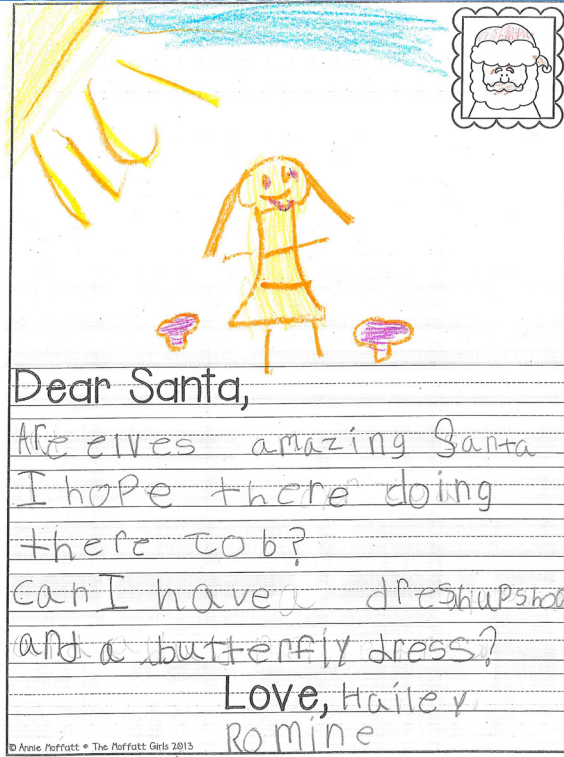 Dear Santa,
Are elves amazing Santa
I hope there doing
there Job?
can I have a dreshupshoo
and a butterfly dress?
Love, Hailey
Romine
© Annie Moffatt • The Moffatt Girls 2013